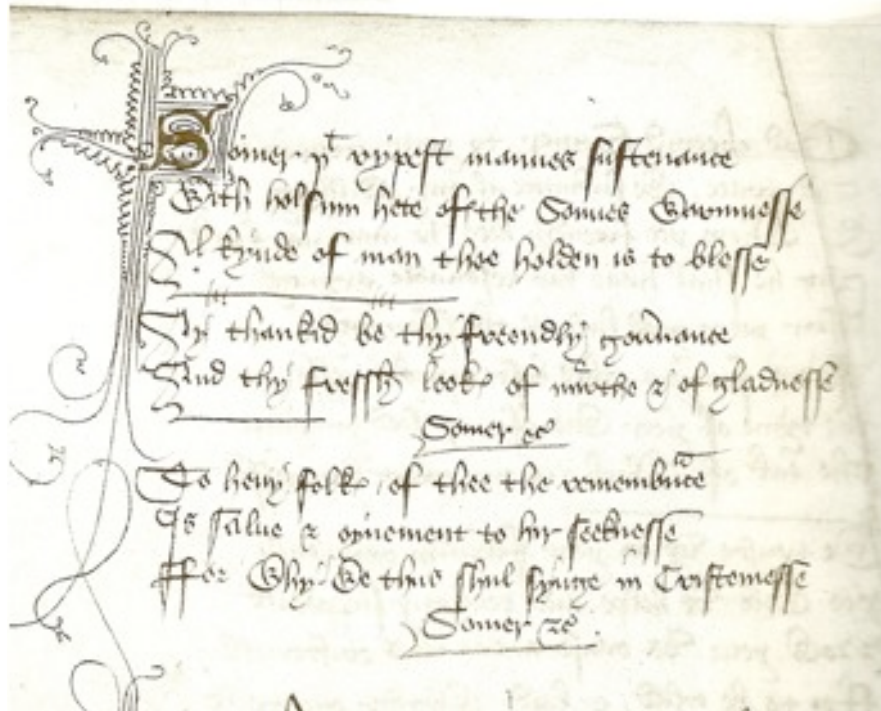 Somer þt rypest mannes sustenance
With holsum hete of the Sonnes warmnesse
Al kynde of man thee holden is to blesse
Ay thankid be thy freendly gouuance
And thy fressh look of mirthe & of gladnesse
Somer &c
To heuy folk of thee the remembrance
Is salue & oynement to hir seeknesse
For why we thus shul synge in Cristemesse
Somer &c